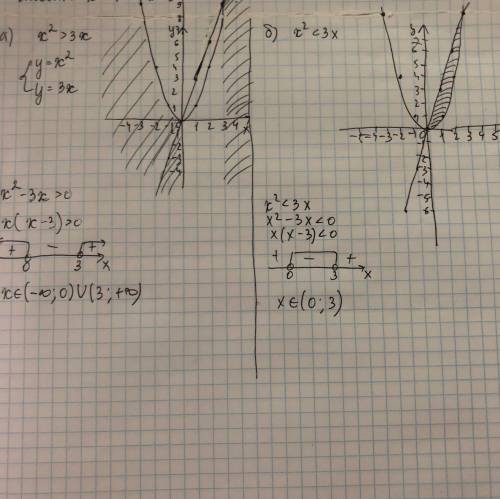 а) x² > 3x
{ y = x²
y = 3x
y
9
8
6
5
4
3
2
1
-4 -3 -2 -1 0 1 2 3 4 x
x² - 3x > 0
x(x - 3) > 0
+ - +
0 3 x
x ∈ (-∞; 0) ∪ (3; +∞)
б) x² < 3x
-5 -4 -3 -2 -1 0 1 2 3 4 5
-1
-2
-3
-4
-5
-6
x² < 3x
x² - 3x < 0
x(x - 3) < 0
+ - +
0 3 x
x ∈ (0; 3)